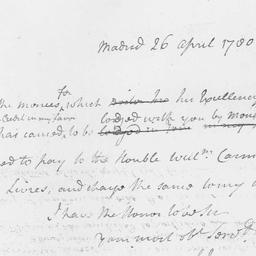 Madrid 26 April 1780
the monies for which his Excellency
Credit in my favor lodged with you by
has caused to be lodged in your
ed to pay to the Honble Willm Carm
Livres, and charge the same to my
I have the Honor to be Sr
Your most obt Servt